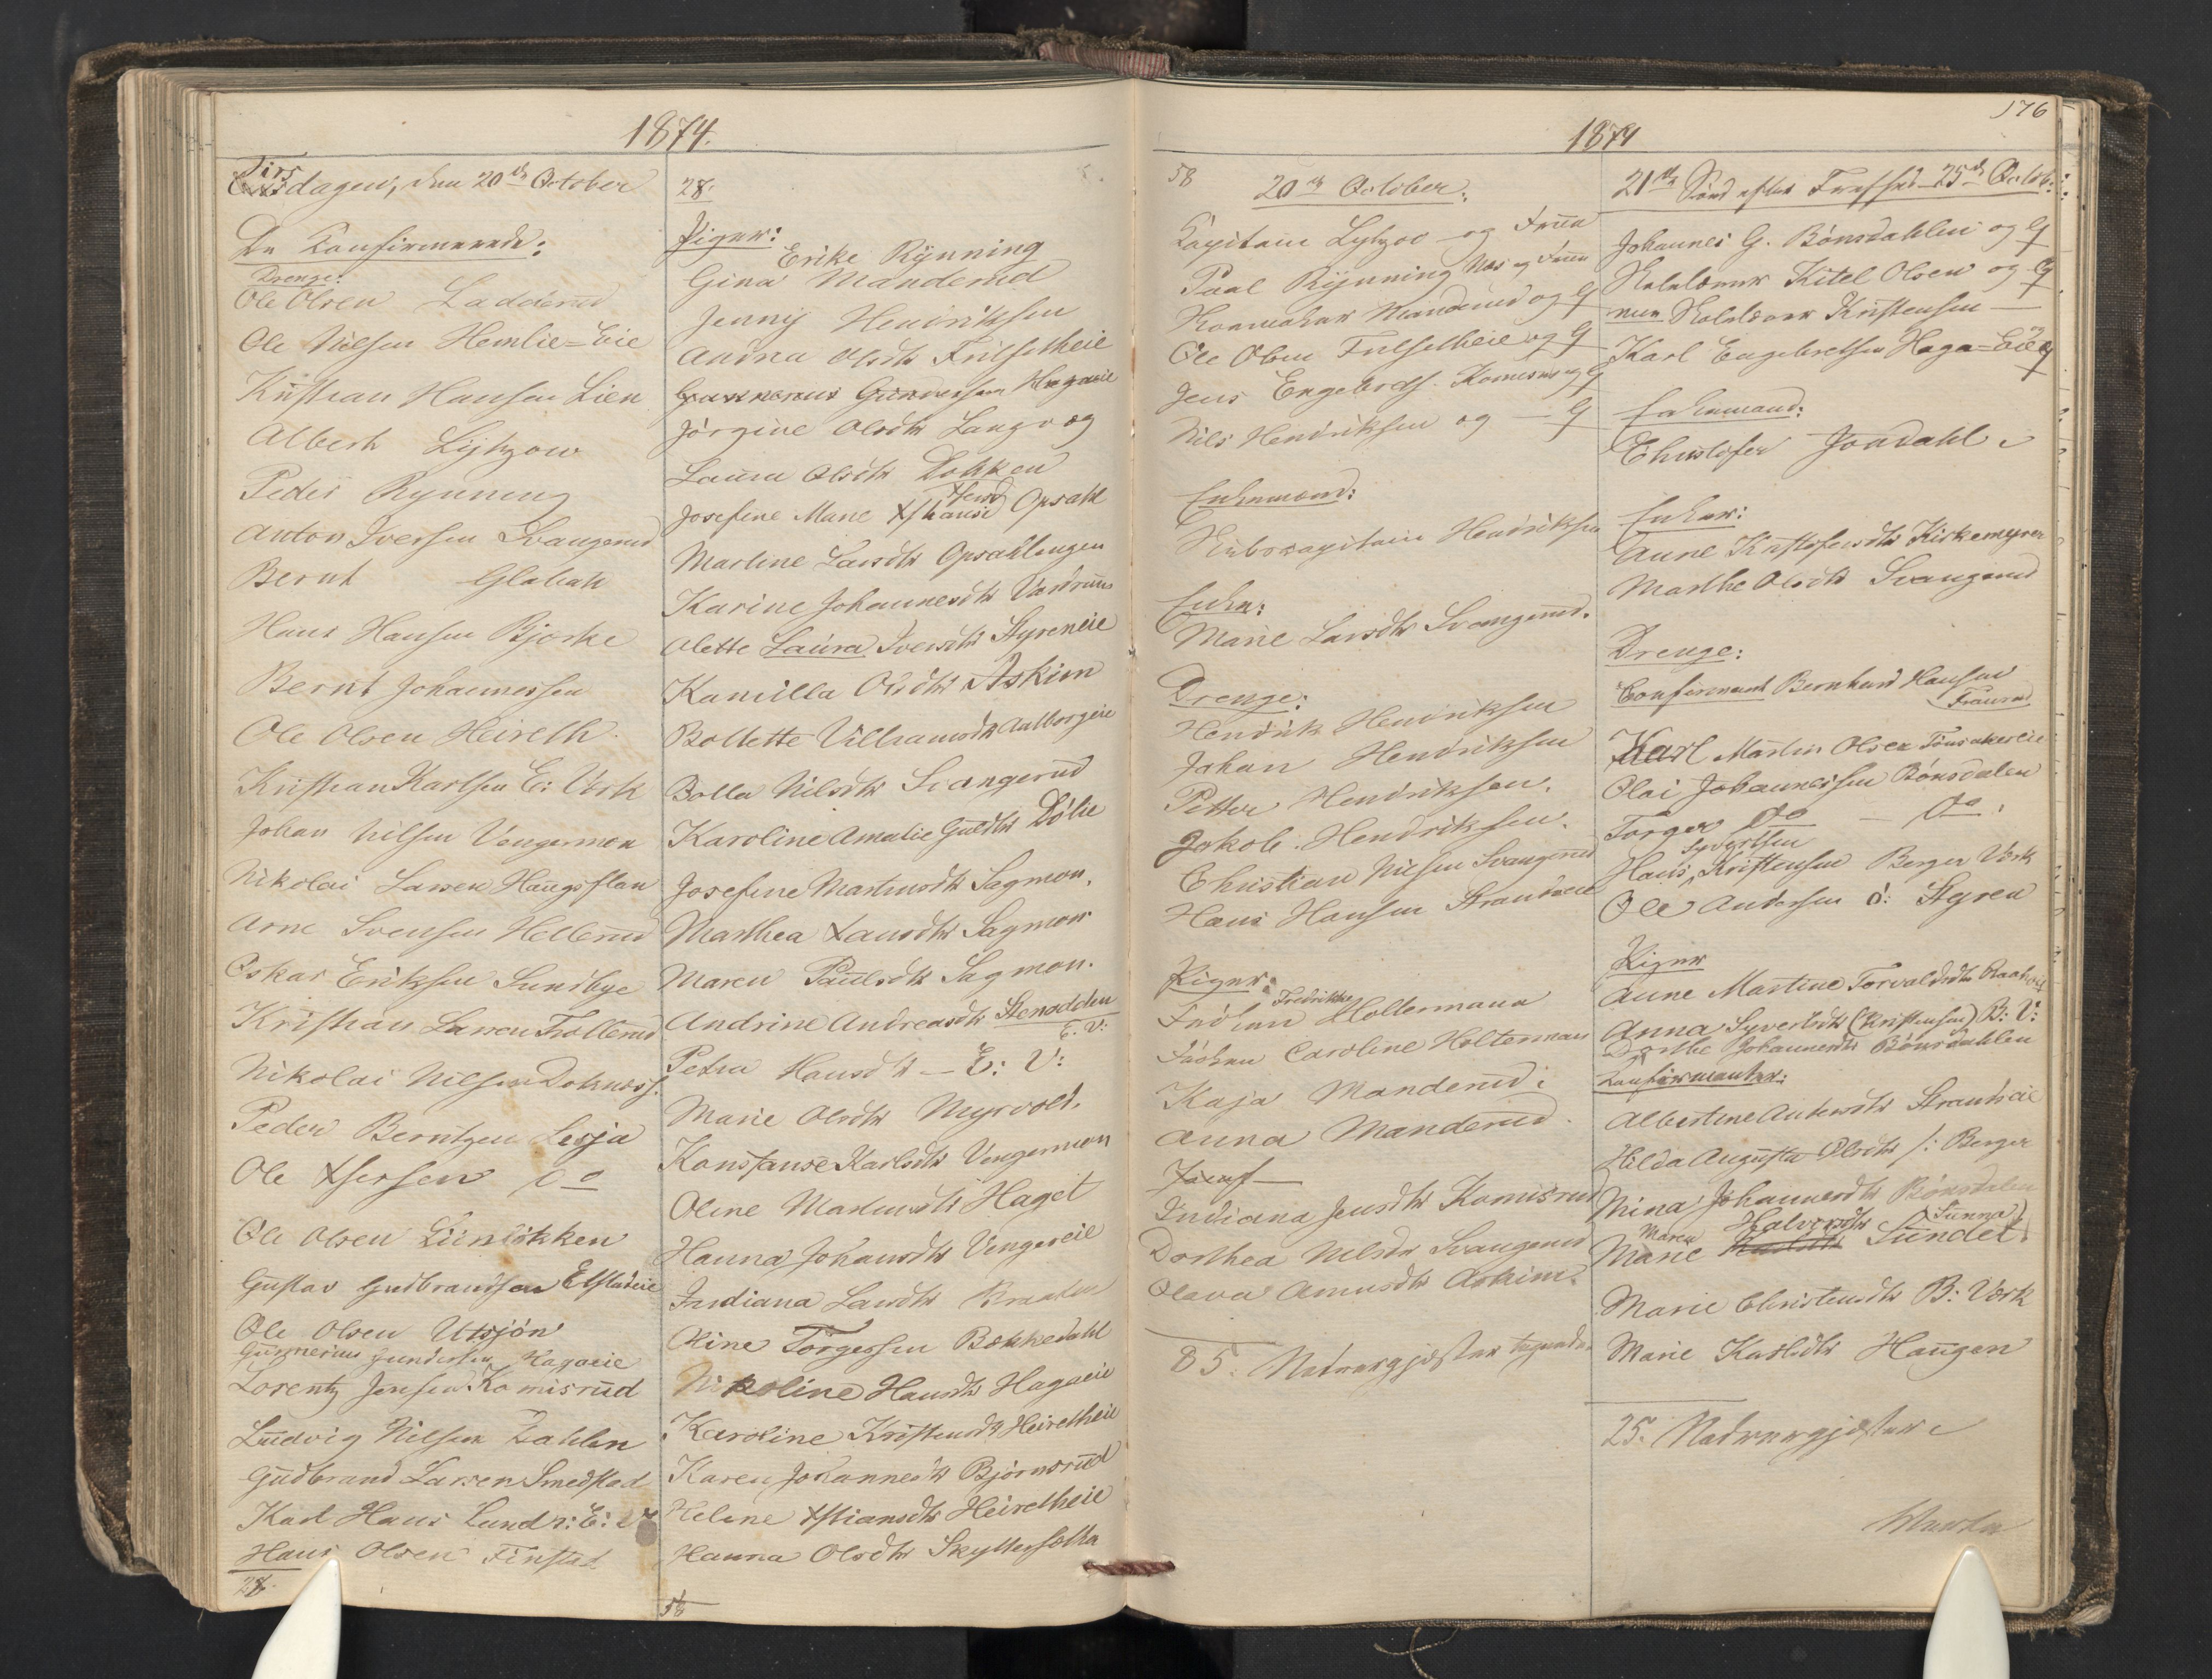 1874.
Tirsdagen, den 20de October
De Konfirmerede:
Drenge:
Ole Olsen Ladderud
Ole Nilsen Hemlie=Eie
Kristian Hansen Lien
Albert Lytzow
Peder Rynning
Anton Iversen Svangerud
Bernt
Hans Hansen Bjørke
Bernt Johannessen
Ole Olsen Heireth.
Kristian Karlsen E: Værk
Johan Nilsen Vengermoen
Nikolai Larsen
Arne Svensen Hellerud
Oskar Eriksen Sundbye
Kristian Larsen Trollerud
Nikolai Nilsen
Peder Berntzen Lesja
Ole do
Ole Olsen Liinløkken
Gustav Gudbrandsen
Ole Olsen Utsjøn
Gunnerius Gundersen Hagaeie
Lorentz Jensen Komisrud
Ludvig Nilsen Dahlen
Gudbrand Larsen Smedstad
Karl Hans
Hans Olsen Finstad
28.
28.
Piger:
Erike Rynning
Gina Manderud
Jenny Hendriksen
Andrea Olsdtr
Gunnerius Gundersen Hagaeie
Jørgine Olsdtr Langvæg
Laura Olsdtr Dokken
Josefine Marie Opsahl
Martine Larsdtr Opsahlengen
Karine Johannesdtr
Olette Laura Iversdtr Styreneie
Kamilla Olsdtr Askim
Bollette Villiamsdtr
Bolla Nilsdtr Svangerud
Karoline Amalie Guldtr Dølie
Josefine Martinsdtr Sagmon.
Marthea Larsdtr Sagmon
Maren Paulsdtr Sagmon.
Andrine Andreasdtr Stensodden
E. V:
Petra Hansdtr — E: V:
Marie Olsdtr Myrvold.
Konstanse Karlsdtr Vengermoen
Oline Martinsdtr Haget
Hanna Johansdtr Vengereie
Indiana Larsdtr Braaten
Oline Torgersen Bækkedahl
Nikoline Hansdtr Hagaeie
Karoline Kristensdtr Heiretheie
Karen Johannesdtr Bjørnsrud
Helene Xstiansdtr Heiretheie
Hanna Olsdtr
56
1874
58
20de October:
Kapitain Lytzow og Frue
Paal Rynning og Frue
Manderud og G
Ole Olsen og G
Jens Engebreds. Komisrud og G
Nils Hendriksen og — G
Enkemænd:
Skibskapitain Hendriksen
Enke:
Marie Larsdtr Svangerud.
Drenge:
Hendrik Hendriksen
Johan Hendriksen
Petter Hendriksen.
Jakob. Hendriksen.
Christian Nilsen Svangerud
Hans Hansen
Piger:
Frøken Fredrikke Holtermann
Frøken Caroline Holterman
Kaja Manderud:
Anna Manderud.
Indiana Jensdtr Komisrud
Dorthea Nilsdtr Svangerud
Olava Amundtr Askim.
85. Nadvergjæster
176
1874
21de Sønd efter Trefhed 25de Octob:
Johannes G. Bønsdahlen og G
Skolelærer Kitel Olsen og G
Skolelærer Kristensen —
Karl Engebretsen Haga=Eie og G
Enkemand:
Christofer Jondahl
Enker:
Anne Kristofersdtr Kirkemyren
Marthe Olsdtr Svangerud
Drenge:
Confirmant Bernhard Hansen
Karl Martin Olsen
Olai Johannessen Bønsdalen
Torger do — do.
Syvertsen
Hans Kristensen Berger Værk
Ole Andersen ö: Styren
Piger
Anne Martine Torvaldsdtr
Anna Syvertsdtr (Kristensen) B: V:
Dorthe Johannesdtr Bønsdahlen
Konfirmanter:
Albertine Antonsdtr
Hilda Augusta Olsdtr /: Berger
Mina Johannesdtr Bønsdalen
Maren Halvorsdtr (Sunna)
Marie Sundet
Marie Christensdtr B: Værk
Marie Karlsdtr Haugen
25. Nadvergjæster